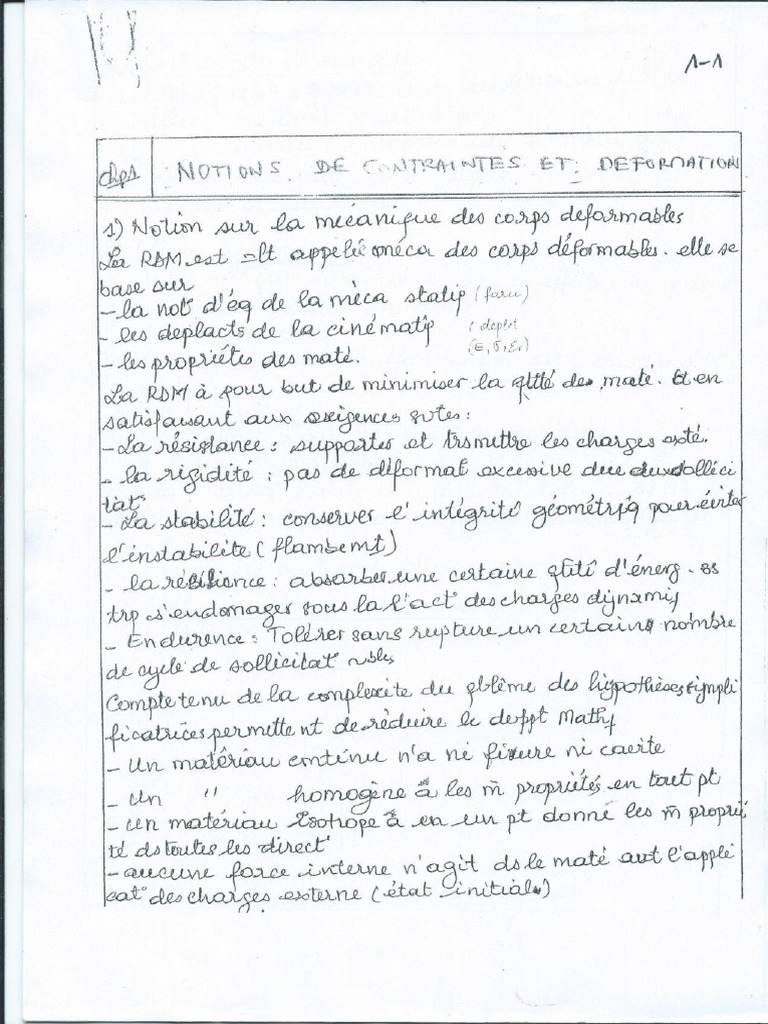 1-1
chp1 NOTIONS DE CONTRAINTES ET DEFORMATION
1) Notion sur la mécanique des corps deformables
La RDM est =lt appelée méca des corps déformables. elle se
base sur
- la not° d'éq de la méca statiq (force)
- les deplacts de la cinématiq (deplct
- les propriétés des maté. (E, σ, εr)
La RDM à pour but de minimiser la qtité des maté. Et en
satisfaisant aux exigences svtes:
- La résistance : supporter et trsmettre les charges exté.
- la rigidité : pas de déformat° excessive due solléci
tat°
- La stabilité : conserver l'intégrité géométriq pour éviter
l'instabilité (flambemt)
- la résilience : absorber une certaine qtité d'énerg. ss
trp s'endomager sous la l'act° des charges dynamiq
- Endurence : Tolérer sans rupture un certain nombre
de cycle de sollicitat° nbles
Compte tenu de la complexité du pblème des hypothèses simpli
ficatrices permettent de réduire le devppt Mathq
- Un matériau continu n'a ni fissure ni cavité
- Un " homogène à les m̄ propriétés en tout pt
- Un matériau Isotrope à en un pt donné les m̄ proprié
té ds toutes les direct°
- aucune force interne n'agit ds le maté avt l'appli
cat° des charges externe (état initial)